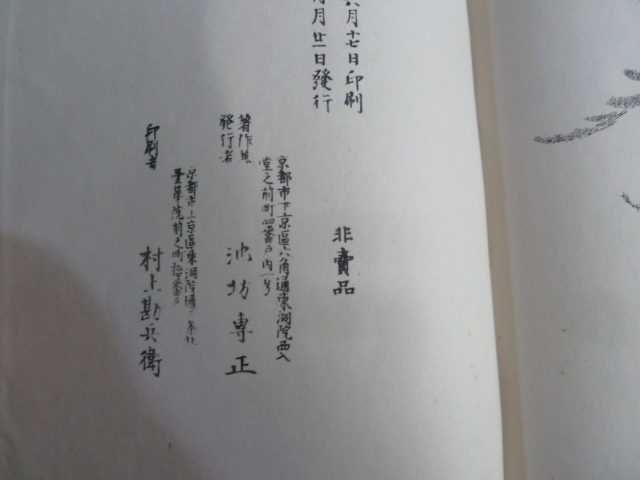 六月十七日印刷
月廿一日發行
非賣品
京都市下京區六角通東洞院西入
堂之前町四番戸内一号
著作兼
發行者
池坊專正
京都市上京區東洞院通二条北
前之町拾番戸
印刷者
村上勘兵衛